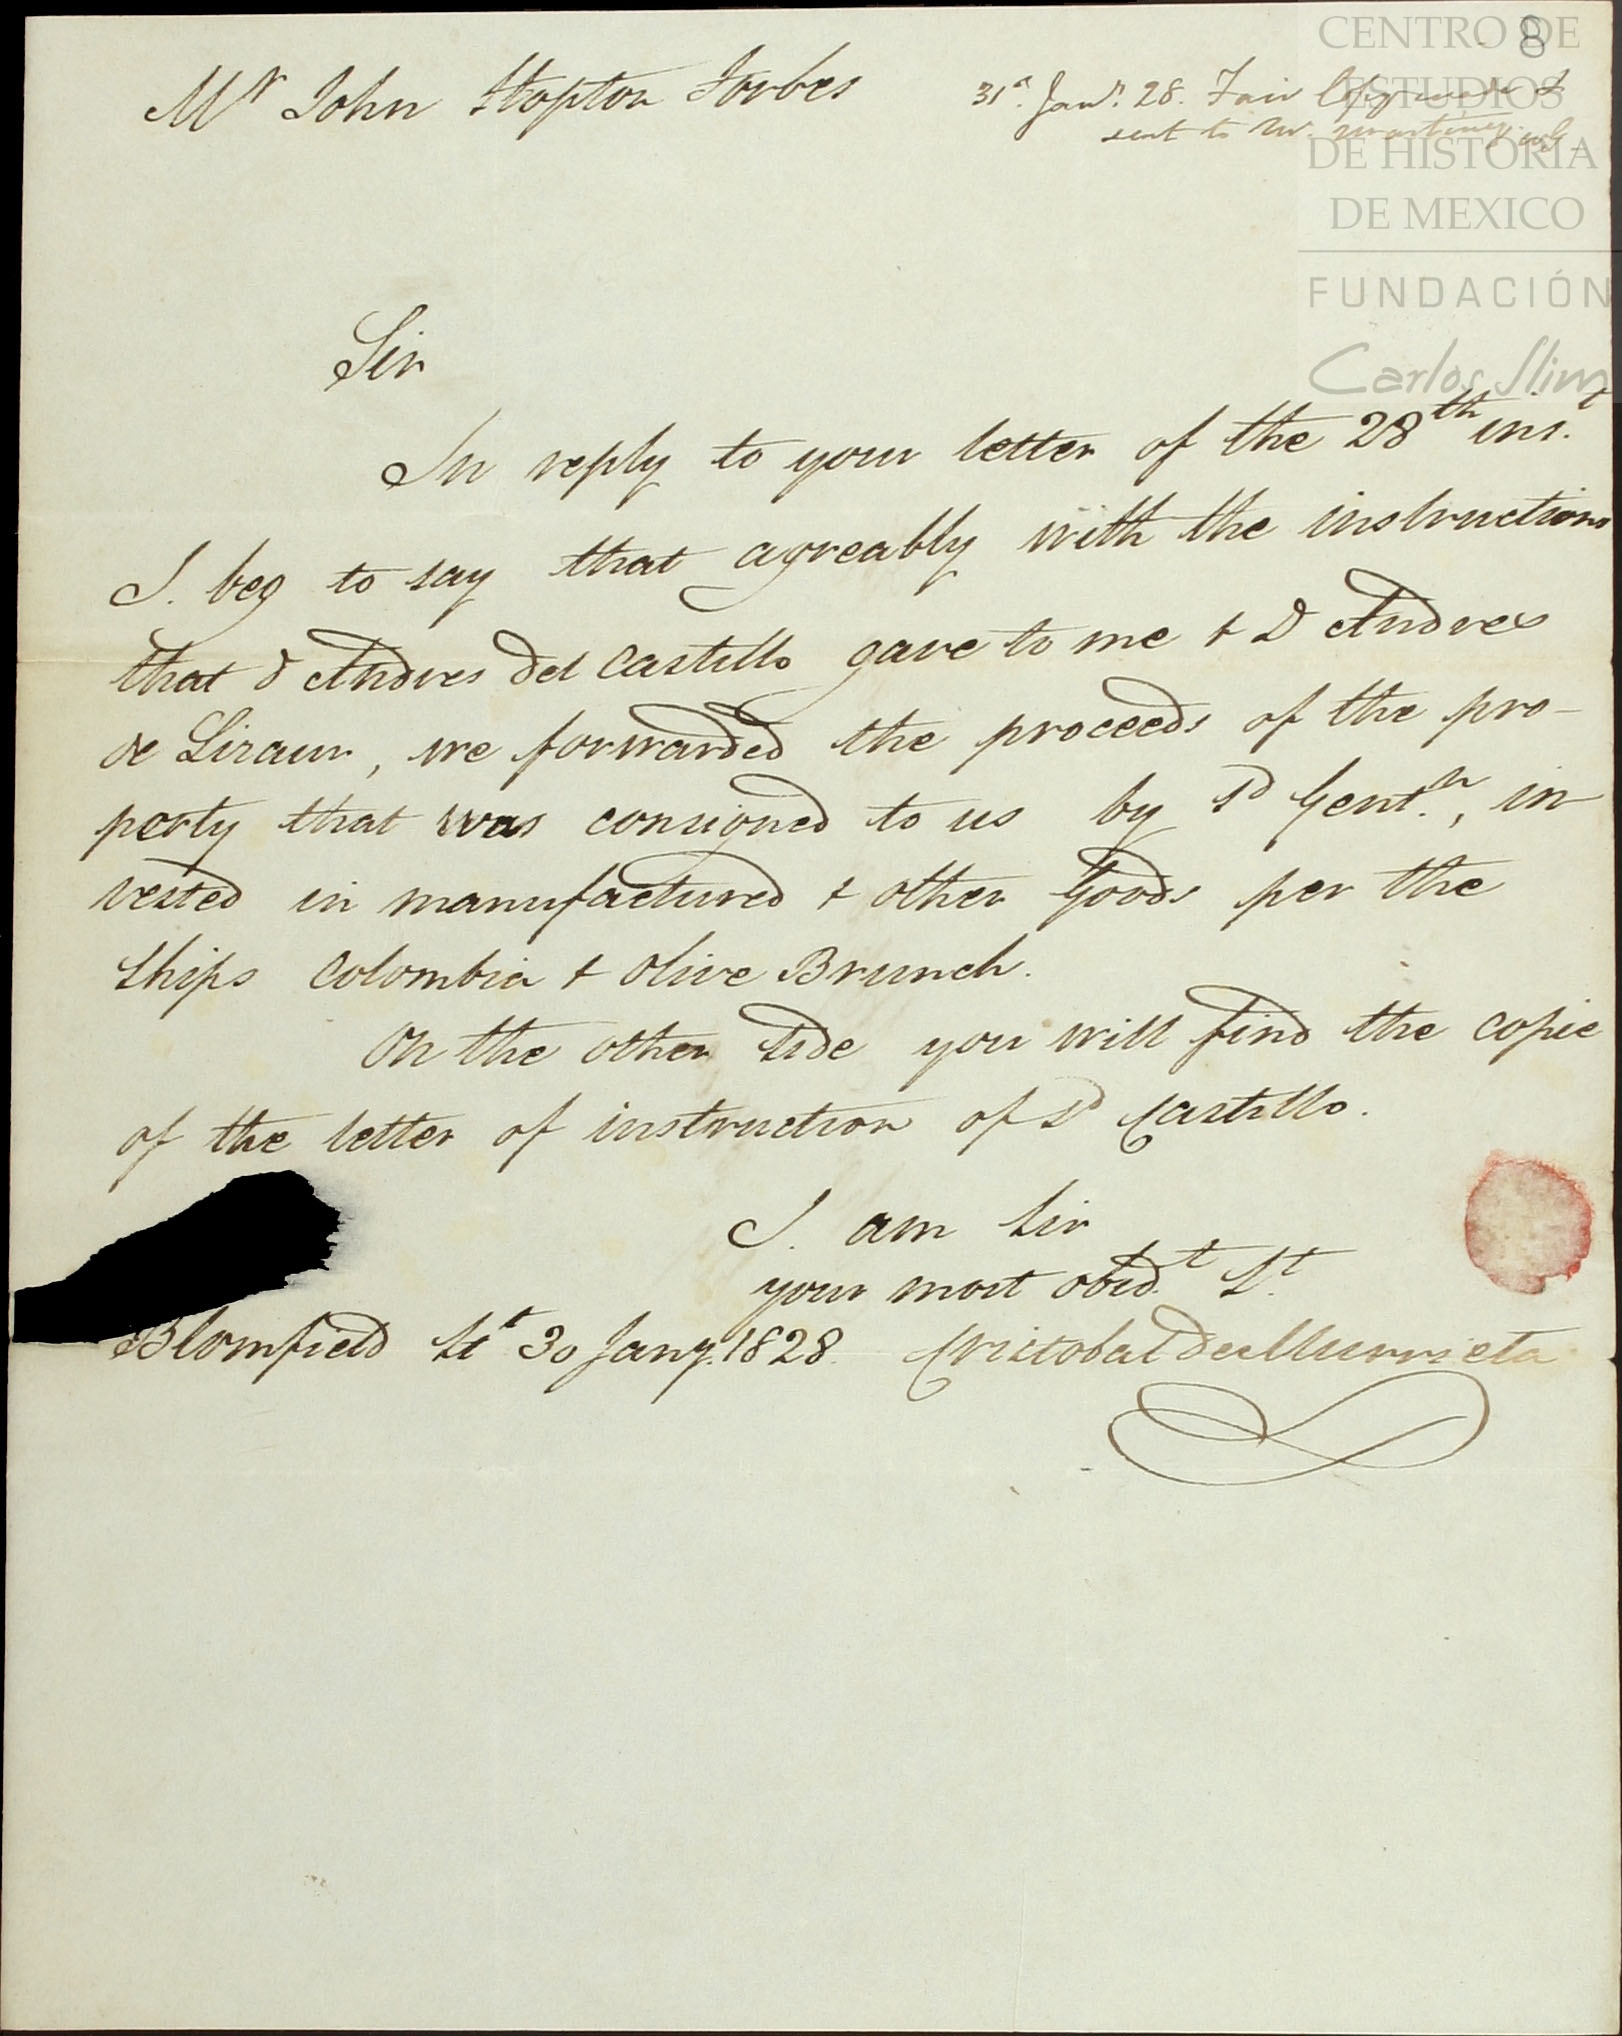 8
Mr John Stopton Forbes
31st Jany. 28. Fair Copy made &
sent to Mr. Martinez
CENTRO DE
ESTUDIOS
DE HISTORIA
DE MEXICO
FUNDACIÓN
Carlos Slim
Sir
In reply to your letter of the 28th inst.
I. beg to say that agreably with the instructions
that D Andres del Castillo gave to me & D Andres
de Lizaur, we forwarded the proceeds of the pro-
perty that was consigned to us by sd Gentn., in
vested in manufactured & other Goods per the
ships Colombia & Olive Brunch.
On the other side you will find the copie
of the letter of instruction of sd Castillo.
I. am Sir
your most obedt. St.
Blomfield St 30 Jany. 1828. Cristobal de Murrieta